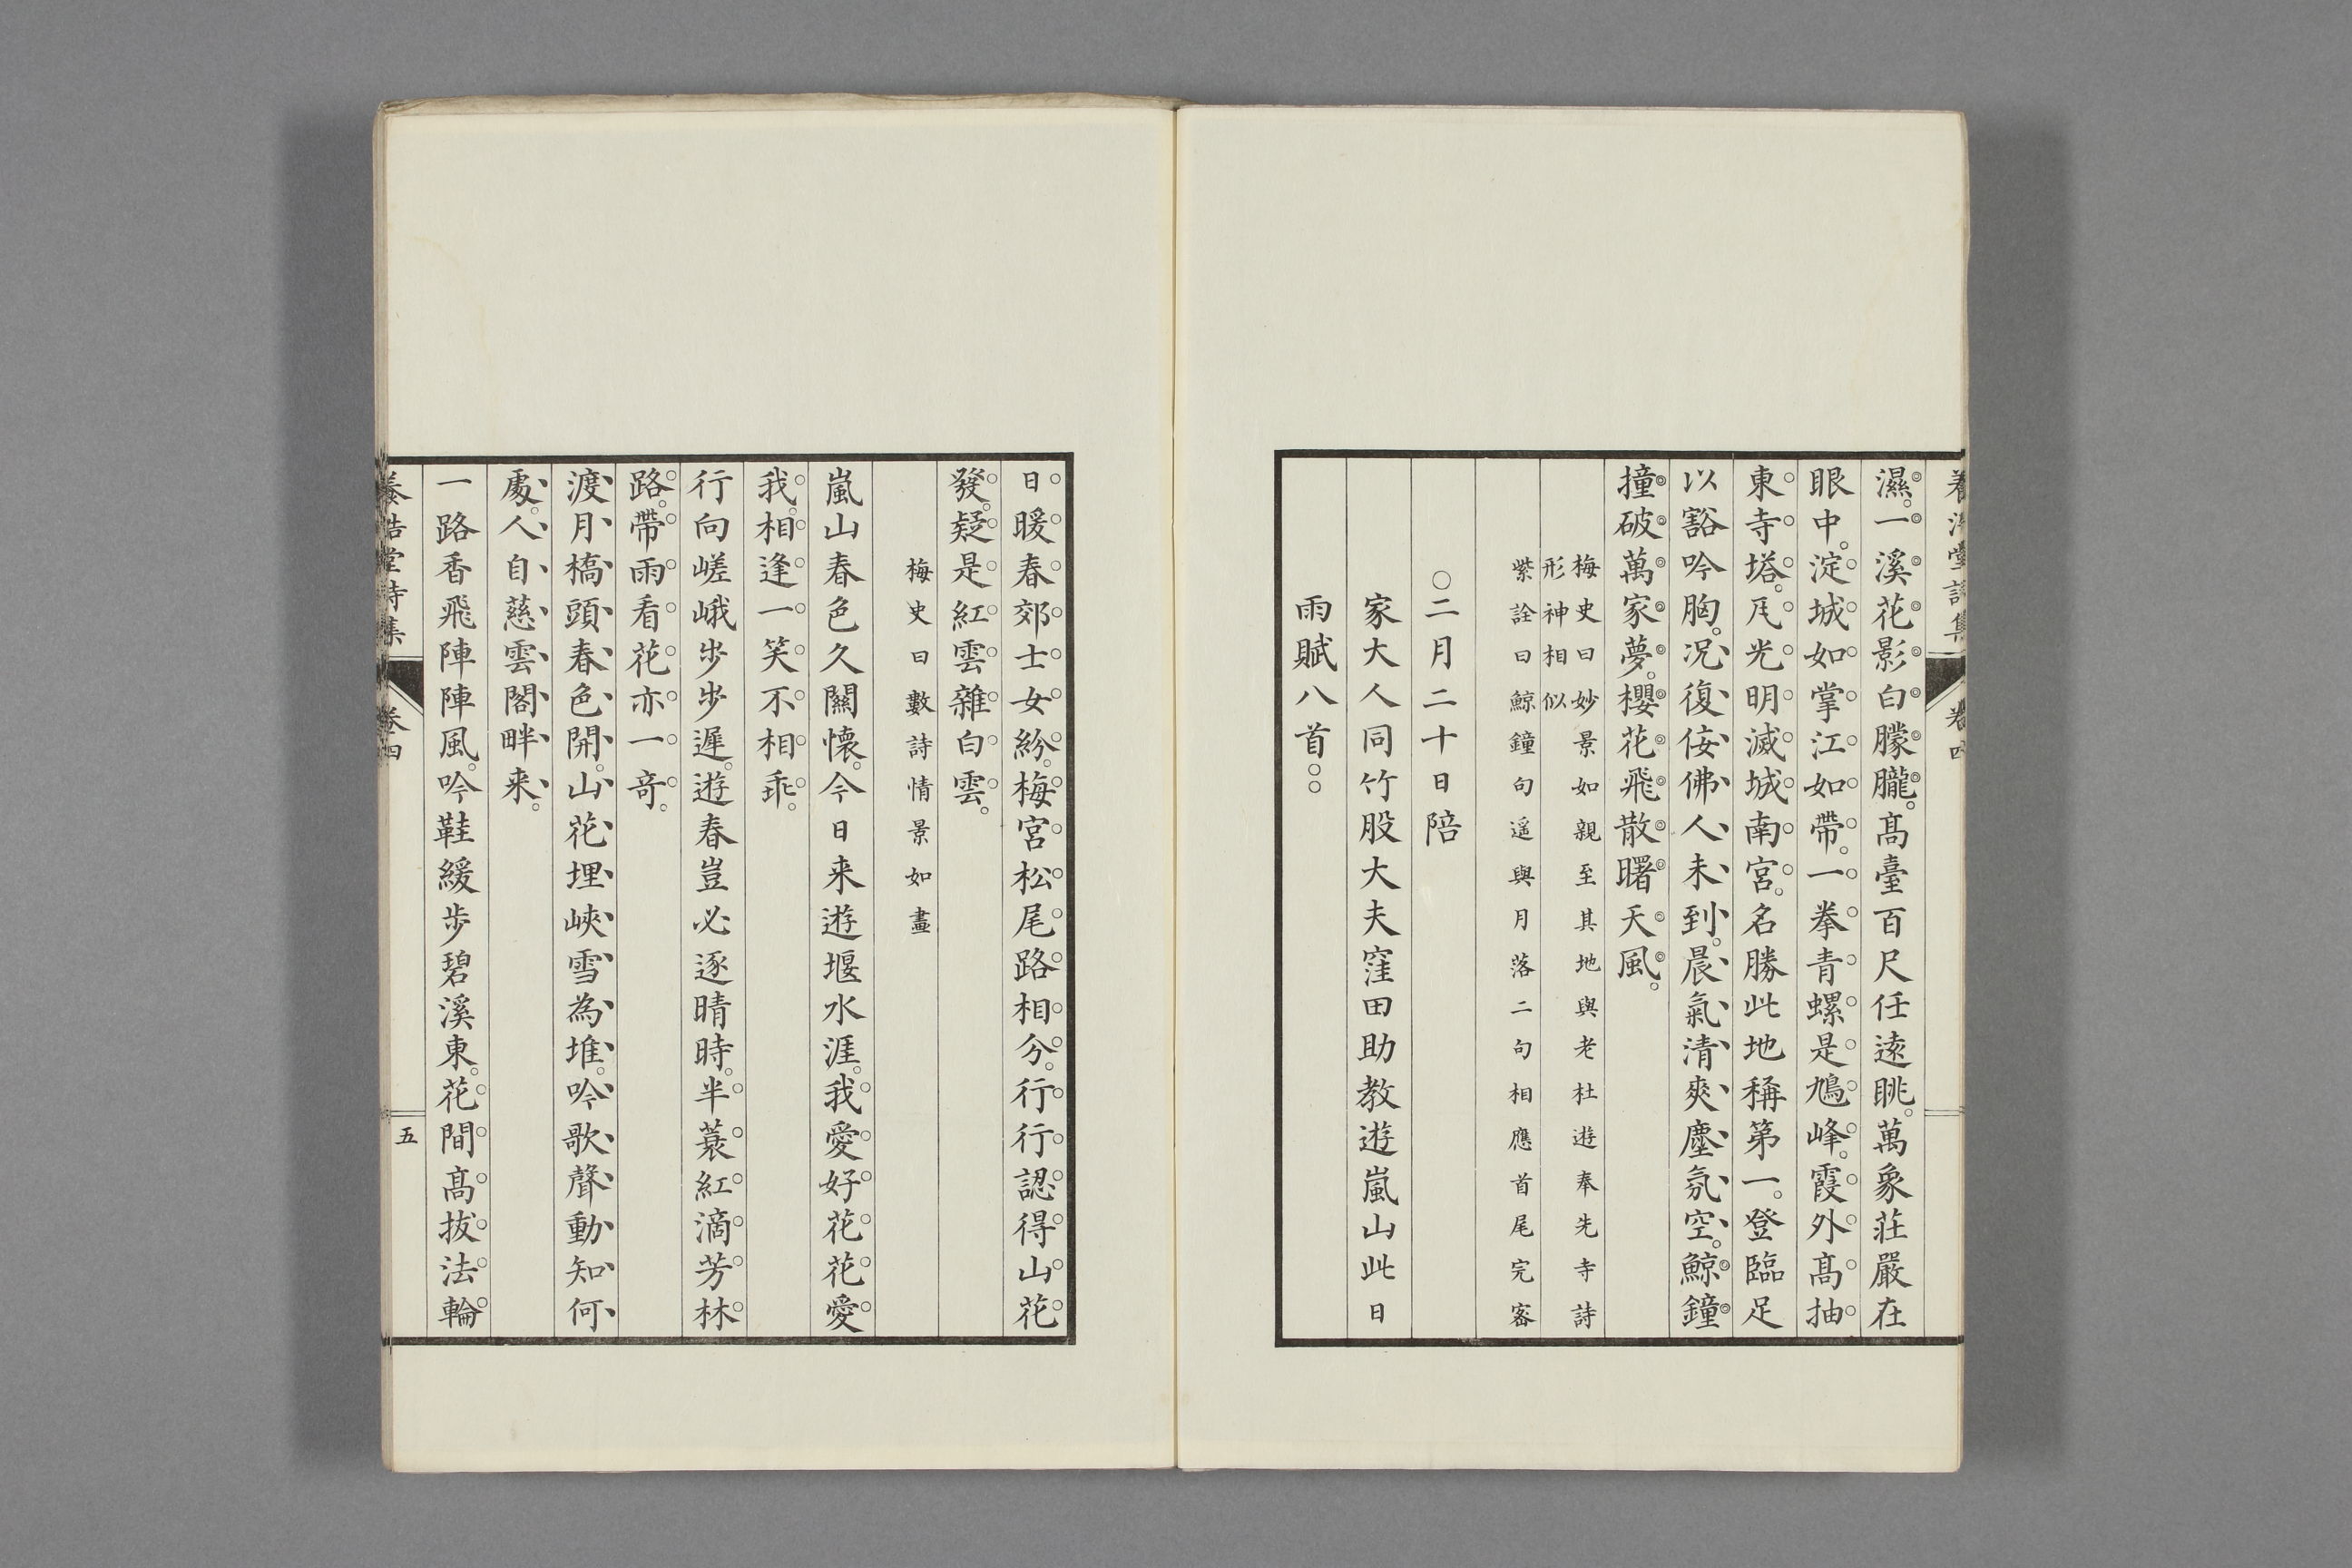 濕。一溪花影白朦朧。髙臺百尺任逺眺。萬象莊嚴在
眼中。淀城如掌江如帶。一拳青螺是鳩峰。霞外髙抽
東寺塔。瓦光明滅城南宮。名勝此地稱第一。登臨足
以豁吟胸。况復佞佛人未到。晨氣清爽塵氛空。鯨鐘
撞破萬家夢。櫻花飛散曙天風。
梅史曰妙景如親至其地與老杜遊奉先寺詩
形神相似
紫詮曰鯨鐘句遥與月落二句相應首尾完密
○二月二十日陪
家大人同竹股大夫窪田助教遊嵐山此日
雨賦八首○○
日暖春郊士女紛。梅宮松尾路相分。行行認得山花
發。疑是紅雲雜白雲。
梅史曰數詩情景如畫
嵐山春色久關懷。今日来遊堰水涯。我愛好花花愛
我。相逢一笑不相乖。
行向嵯峨步步遲。遊春豈必逐晴時。半蓑紅滴芳林
路。帶雨看花亦一奇。
渡月橋頭春色開。山花埋峽雪為堆。吟歌聲動知何
處。人自慈雲閣畔来。
一路香飛陣陣風。吟鞋緩步碧溪東。花間髙拔法輪
養浩堂詩集 卷四
五